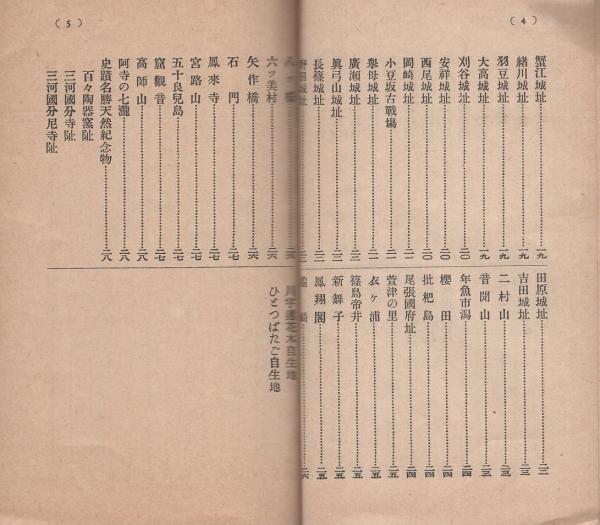 (4)
蟹江城址……一九
緒川城址……一九
羽豆城址……一九
大高城址……一九
刈谷城址……二〇
安祥城址……二〇
西尾城址……二〇
岡崎城址……二一
小豆坂古戰場……二一
擧母城址……二一
廣瀬城址……二二
眞弓山城址……二二
長篠城址……二二
野田城址……二二
田原城址……二二
吉田城址……二三
二村山……二三
音聞山……二三
年魚市潟……二四
櫻田……二四
枇杷島……二四
尾張國府址……二四
萱津の里……二五
衣ヶ浦……二五
篠島帝井……二五
新舞子……二五
鳳翔閣……二五
崎……二六
(5)
八ッ橋……二六
六ッ美村……二六
矢作橋……二六
石門……二七
鳳來寺……二七
宮路山……二七
五十良兒島……二七
窟觀音……二七
高師山……二八
阿寺の七瀧……二八
史蹟名勝天然紀念物……二八
百々陶器窯阯
三河國分寺阯
三河國分尼寺阯
川宇連花木自生地
ひとつばたご自生地